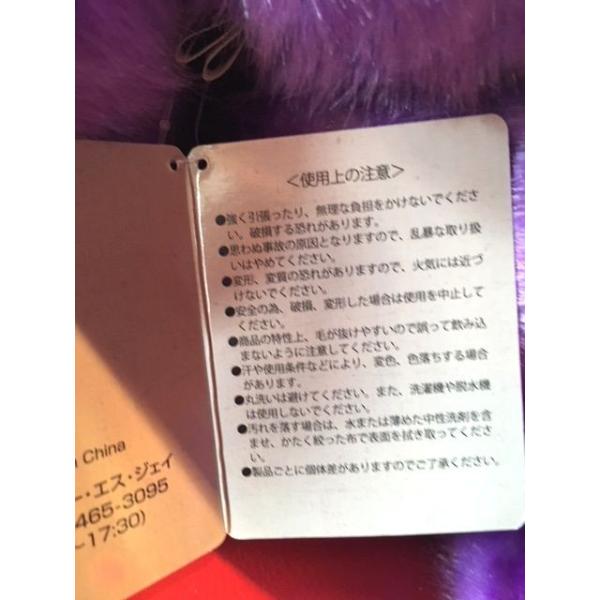 <使用上の注意>
●強く引張ったり、無理な負担をかけないでくださ
い。破損する恐れがあります。
●思わぬ事故の原因となりますので、乱暴な取り扱
いはやめてください。
●変形、変質の恐れがありますので、火気には近づ
けないでください。
●安全の為、破損、変形した場合は使用を中止して
ください。
●商品の特性上、毛が抜けやすいので誤って飲み込
まないように注意してください。
●汗や使用条件などにより、変色、色落ちする場合
があります。
●丸洗いは避けてください。また、洗濯機や脱水機
は使用しないでください。
●汚れを落す場合は、水または薄めた中性洗剤を含
ませ、かたく絞った布で表面を拭き取ってくださ
い。
●製品ごとに個体差がありますのでご了承ください。
China
ー・エス・ジェイ
465-3095
~17:30)